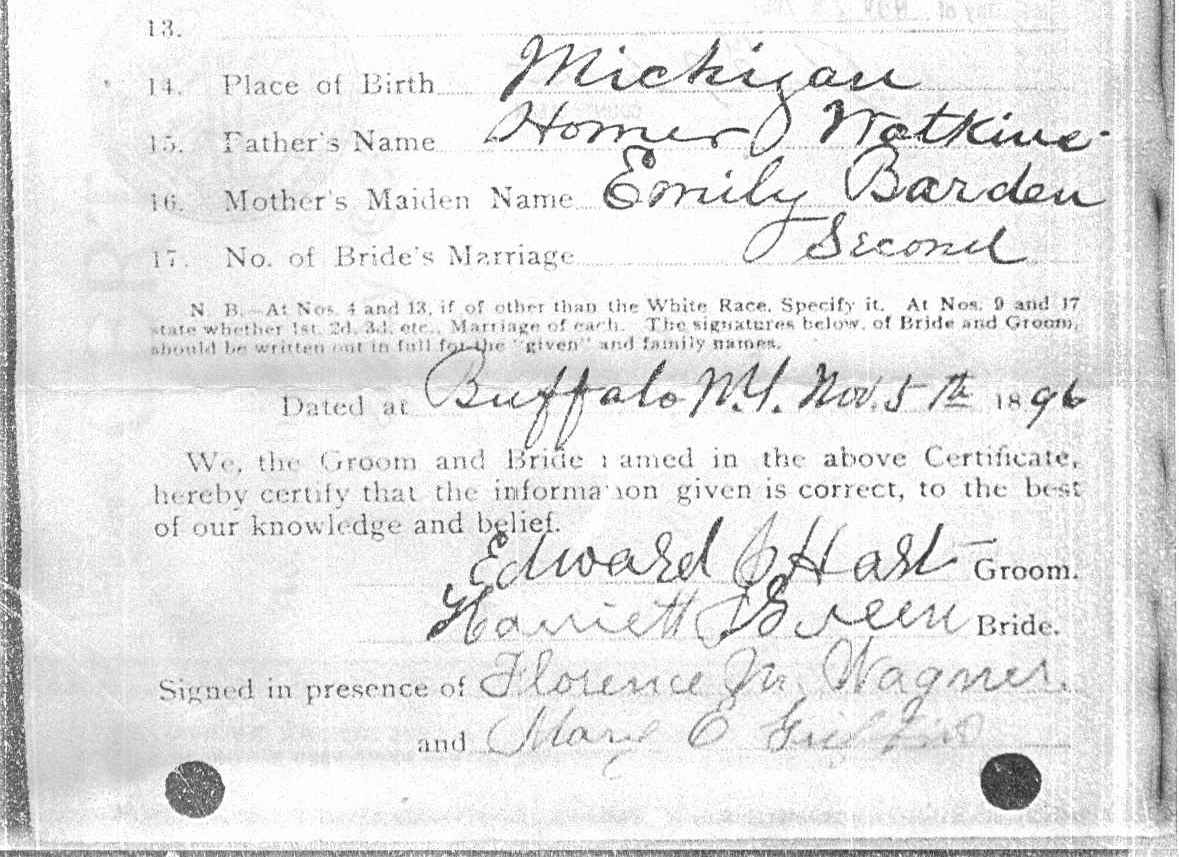 13.
14. Place of Birth Michigan
15. Father's Name Homer Watkins
16. Mother's Maiden Name Emily Barden
17. No. of Bride's Marriage Second
N. B.—At Nos. 4 and 13, if of other than the White Race, Specify it. At Nos. 9 and 17
state whether 1st, 2d, 3d, etc., Marriage of each. The signatures below, of Bride and Groom,
should be written out in full for the "given" and family names.
Dated at Buffalo N.Y. Nov. 5th 1896
We, the Groom and Bride named in the above Certificate,
hereby certify that the information given is correct, to the best
of our knowledge and belief.
Edward J Hart Groom.
Harriett Green Bride.
Signed in presence of Florence M. Wagner.
and Mary E